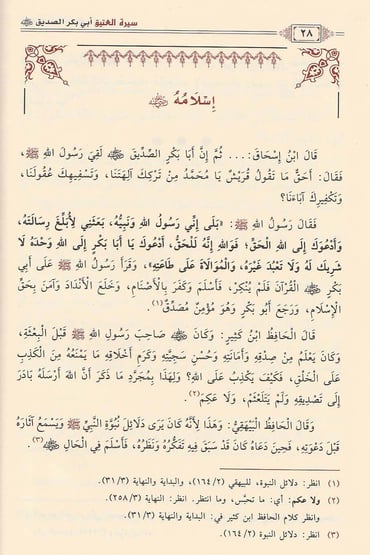 سيرة العتيق أبي بكر الصديق ﵁
٢٨
إِسْلَامُهُ ﵁
قَالَ ابْنُ إِسْحَاقَ: ... ثُمَّ إِنَّ أَبَا بَكْرٍ الصِّدِّيقَ لَقِيَ رَسُولَ اللهِ ﷺ
فَقَالَ: أَحَقٌّ مَا تَقُولُ قُرَيْشٌ يَا مُحَمَّدُ مِنْ تَرْكِكَ آلِهَتَنَا، وَتَسْفِيهِكَ عُقُولَنَا،
وَتَكْفِيرِكَ آبَاءَنَا؟
فَقَالَ رَسُولُ اللهِ ﷺ: «بَلَى إِنِّي رَسُولُ اللهِ وَنَبِيُّهُ، بَعَثَنِي لِأُبَلِّغَ رِسَالَتَهُ،
وَأَدْعُوكَ إِلَى اللهِ الْحَقِّ؛ فَوَاللهِ إِنَّهُ لَلْحَقُّ، أَدْعُوكَ يَا أَبَا بَكْرٍ إِلَى اللهِ وَحْدَهُ لَا
شَرِيكَ لَهُ وَلَا تَعْبُدَ غَيْرَهُ، وَالْمُوَالَاةَ عَلَى طَاعَتِهِ»، وَقَرَأَ رَسُولُ اللهِ ﷺ عَلَى أَبِي
بَكْرٍ ﵁ الْقُرْآنَ فَلَمْ يُنْكِرْ، فَأَسْلَمَ وَكَفَرَ بِالْأَصْنَامِ، وَخَلَعَ الْأَنْدَادَ وَآمَنَ بِحَقِّ
الْإِسْلَامِ، وَرَجَعَ أَبُو بَكْرٍ وَهُوَ مُؤْمِنٌ مُصَدِّقٌ(١).
قَالَ الْحَافِظُ ابْنُ كَثِيرٍ: وَكَانَ ﵁ صَاحِبَ رَسُولِ اللهِ ﷺ قَبْلَ الْبِعْثَةِ،
وَكَانَ يَعْلَمُ مِنْ صِدْقِهِ وَأَمَانَتِهِ وَحُسْنِ سَجِيَّتِهِ وَكَرَمِ أَخْلَاقِهِ مَا يَمْنَعُهُ مِنَ الْكَذِبِ
عَلَى الْخَلْقِ، فَكَيْفَ يَكْذِبُ عَلَى اللهِ؟ وَلِهَذَا بِمُجَرَّدِ مَا ذَكَرَ أَنَّ اللهَ أَرْسَلَهُ بَادَرَ
إِلَى تَصْدِيقِهِ وَلَمْ يَتَلَعْثَمْ، وَلَا عَكِمَ(٢).
وَقَالَ الْحَافِظُ الْبَيْهَقِيُّ: وَهَذَا لِأَنَّهُ كَانَ يَرَى دَلَائِلَ نُبُوَّةِ النَّبِيِّ ﷺ وَيَسْمَعُ آثَارَهُ
قَبْلَ دَعْوَتِهِ، فَحِينَ دَعَاهُ كَانَ قَدْ سَبَقَ فِيهِ تَفَكُّرُهُ وَنَظَرُهُ، فَأَسْلَمَ فِي الْحَالِ ﵁(٣).
(١) انظر: دلائل النبوة، للبيهقي (١٦٤/٢)، والبداية والنهاية (٣١/٣).
(٢) ولا عكم: أي: ما تحبَّس، وما انتظر. انظر: النهاية (٢٥٨/٣)
وانظر كلام الحافظ ابن كثير في: البداية والنهاية (٣١/٣).
(٣) انظر: دلائل النبوة (١٦٤/٢).